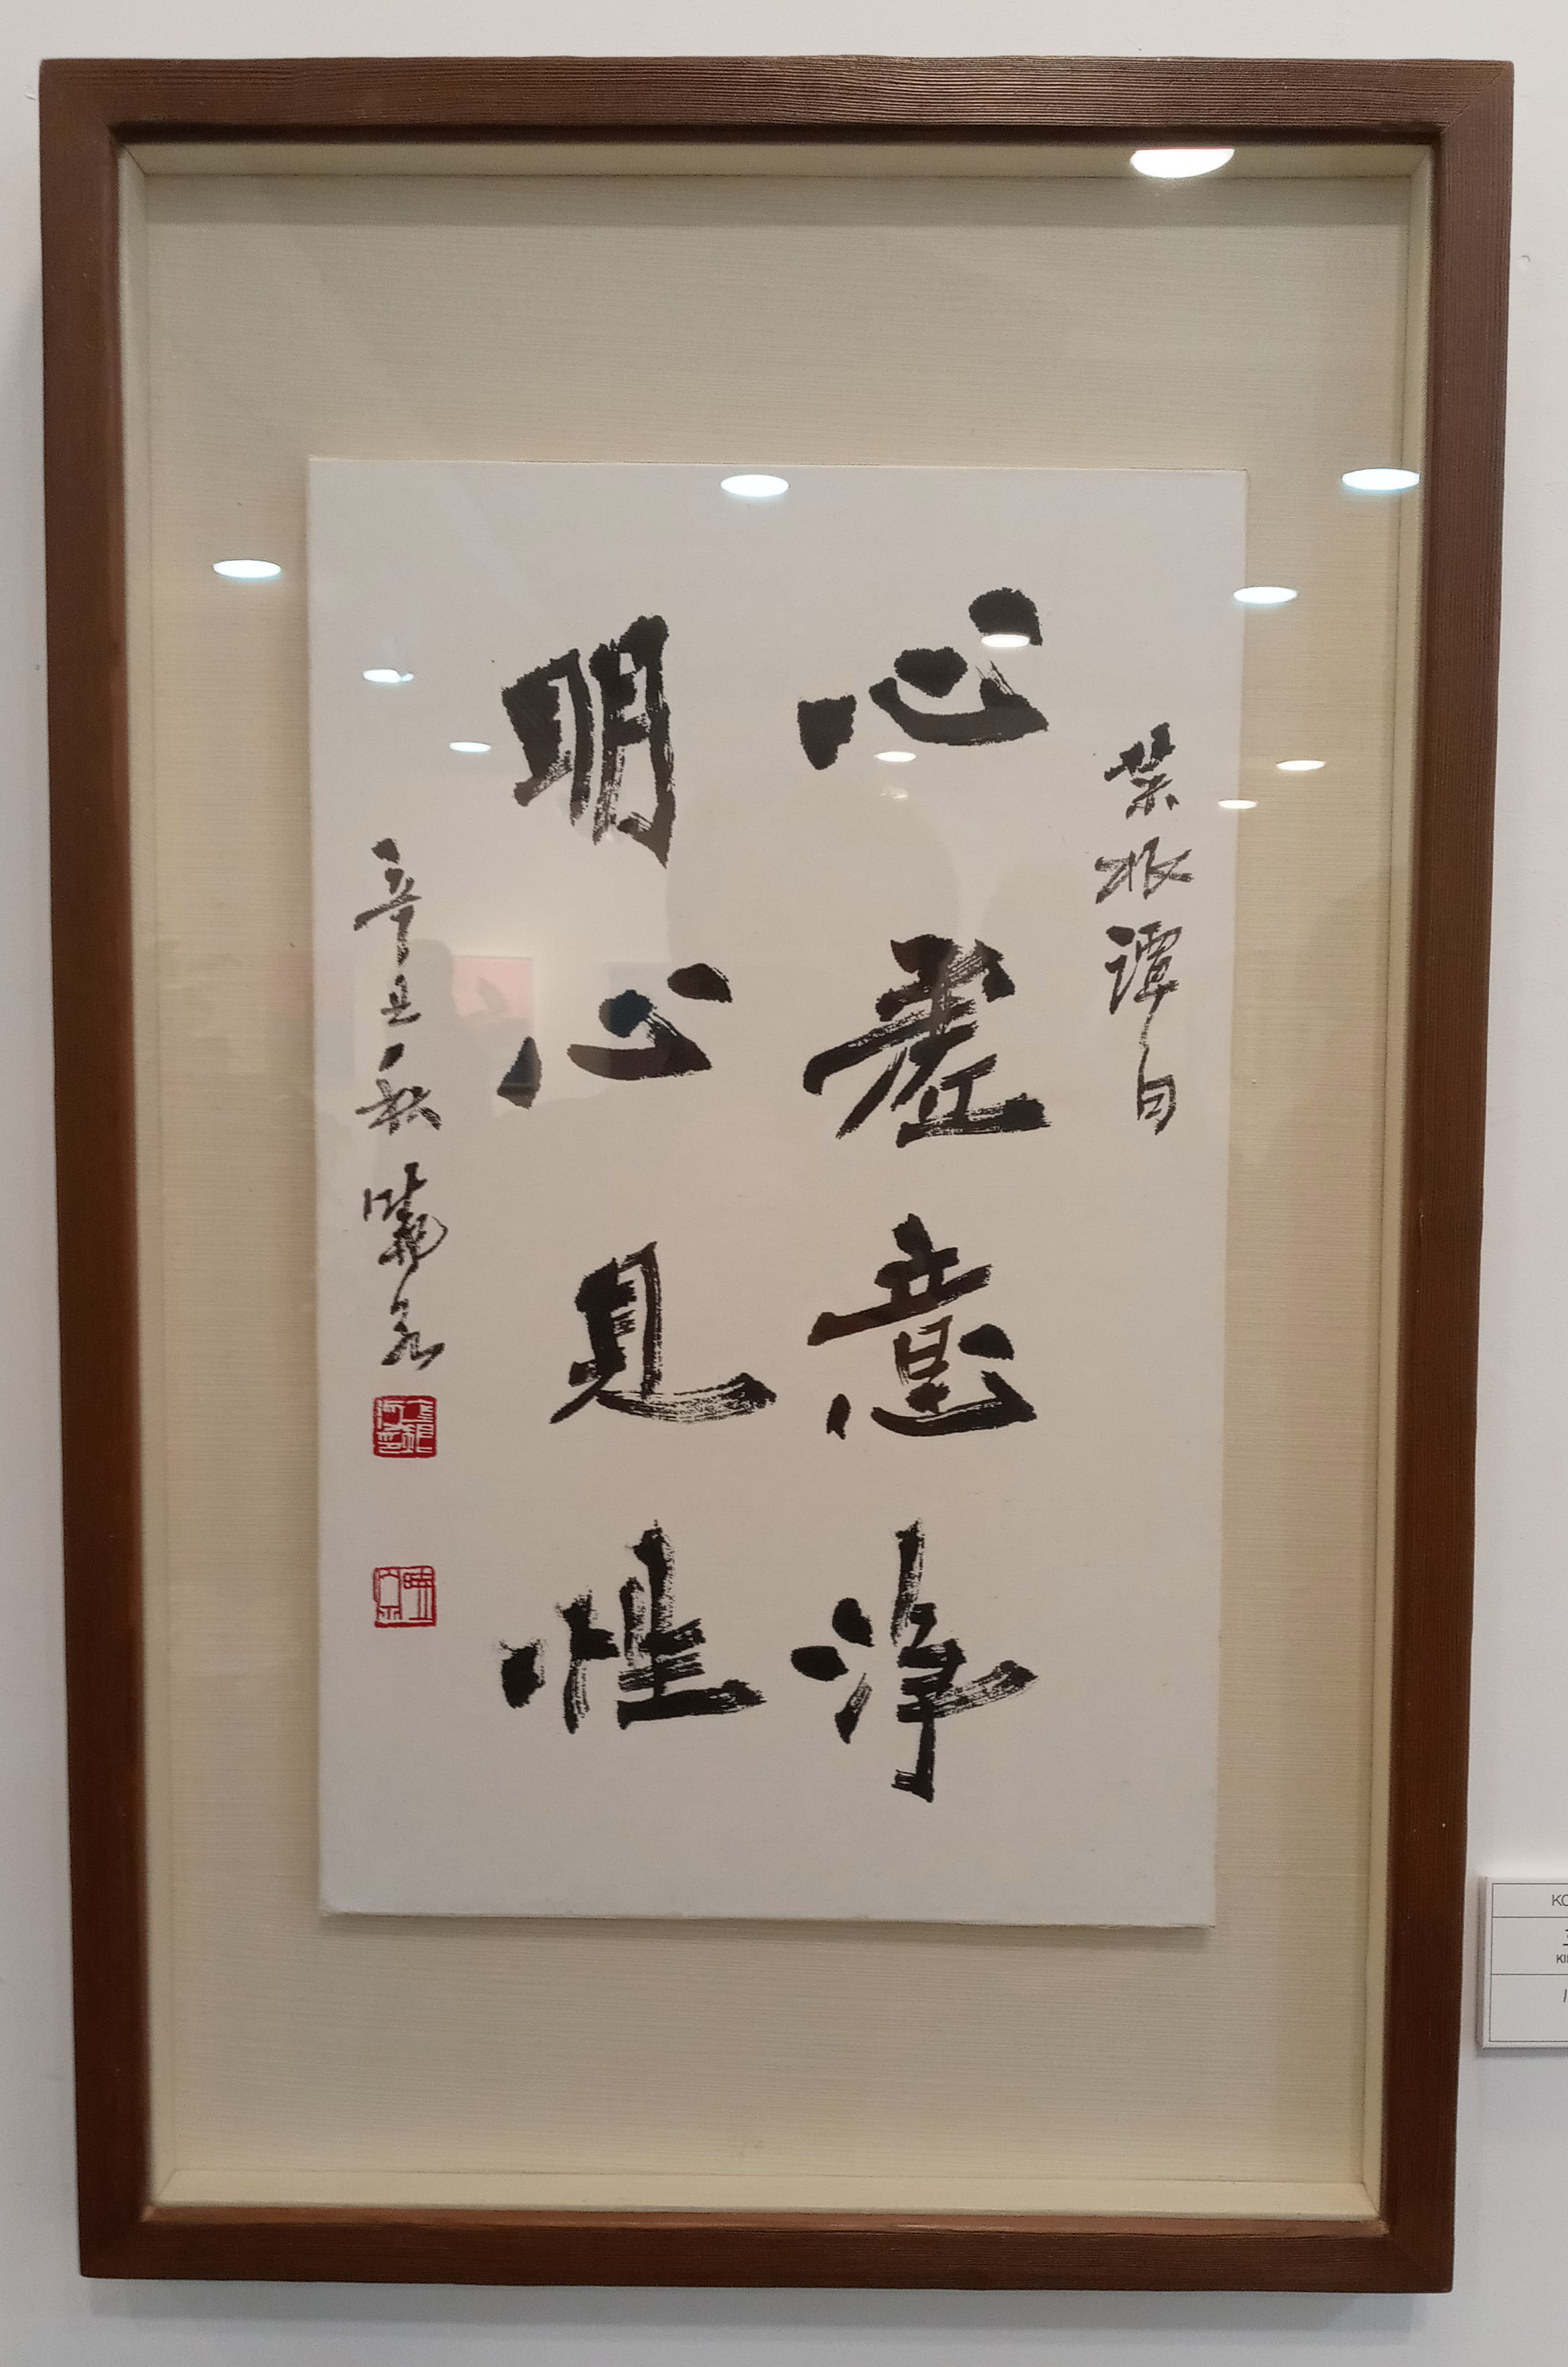 菜根譚句
心虛意淨
明心見性
辛丑秋 曉泉
KO
KI